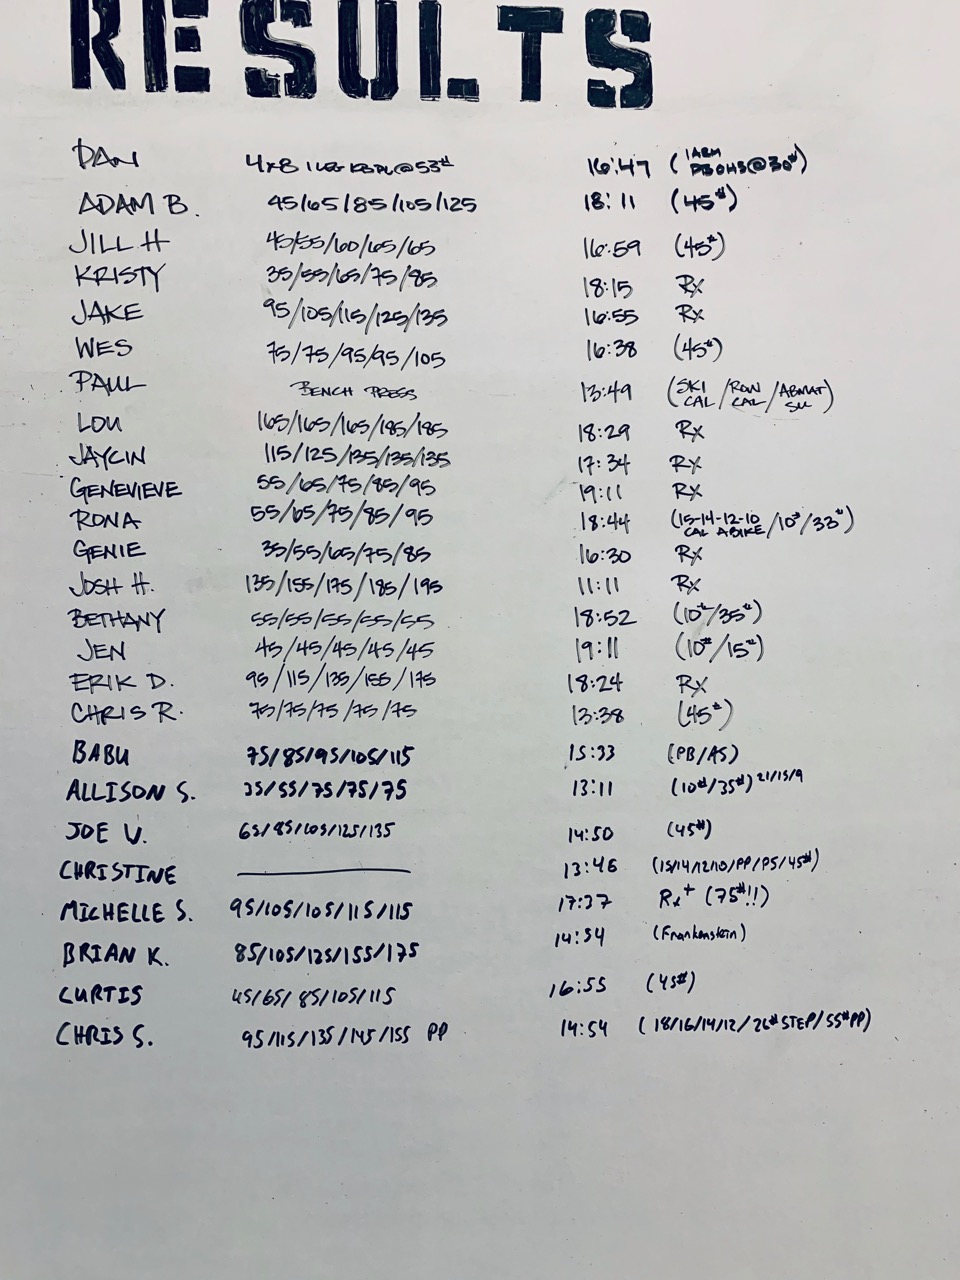 RESULTS
DAN 4x8 1 LEG KBDL@53# 16:47 (1 ARM DBOHS@30#)
ADAM B. 45/65/85/105/125 18:11 (45#)
JILL H 45/55/60/65/65 16:59 (45#)
KRISTY 35/55/65/75/85 18:15 Rx
JAKE 95/105/115/125/135 16:55 Rx
WES 75/75/95/95/105 16:38 (45#)
PAUL BENCH PRESS 13:49 (SKI CAL/ROW CAL/ABMAT SU)
LOU 165/165/165/185/185 18:29 Rx
JAYCIN 115/125/135/135/135 17:34 Rx
GENEVIEVE 55/65/75/85/95 19:11 Rx
RONA 55/65/75/85/95 18:44 (15-14-12-10 CAL ABIKE/10#/33#)
GENIE 35/55/65/75/85 16:30 Rx
JOSH H. 135/155/175/185/195 11:11 Rx
BETHANY 55/55/55/55/55 18:52 (10#/35#)
JEN 45/45/45/45/45 19:11 (10#/15#)
ERIK D. 95/115/135/155/175 18:24 Rx
CHRIS R. 75/75/75/75/75 13:38 (45#)
BABU 75/85/95/105/115 15:33 (PB/AS)
ALLISON S. 35/55/75/75/75 13:11 (10#/35#) 21/15/9
JOE V. 65/85/105/125/135 14:50 (45#)
CHRISTINE 13:46 (15/14/12/10/PP/PS/45#)
MICHELLE S. 95/105/105/115/115 17:37 Rx+ (75#!!)
BRIAN K. 85/105/125/155/175 14:54 (Frankenstein)
CURTIS 45/65/85/105/115 16:55 (45#)
CHRIS S. 95/115/135/145/155 PP 14:54 (18/16/14/12/26# STEP/55# PP)